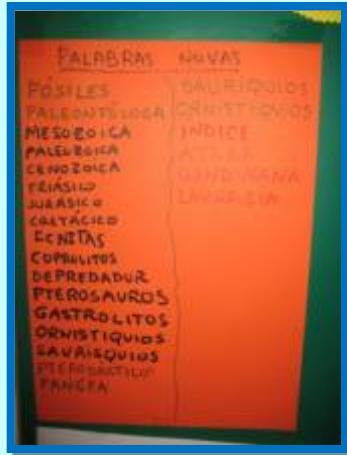 PALABRAS NOVAS
FÓSILES
PALEONTÓLOGA
MESOZOICA
PALEOZOICA
CENOZOICA
TRIÁSICO
JURÁSICO
CRETÁCICO
ICNITAS
COPROLITOS
DEPREDADOR
PTEROSAUROS
GASTROLITOS
ORNISTIQUIOS
SAURISQUIOS
PTERODÁCTILO
PANGEA
SAURÍQUIOS
ORNISTIQUIOS
ÍNDICE
GONDWANA
LAURASIA